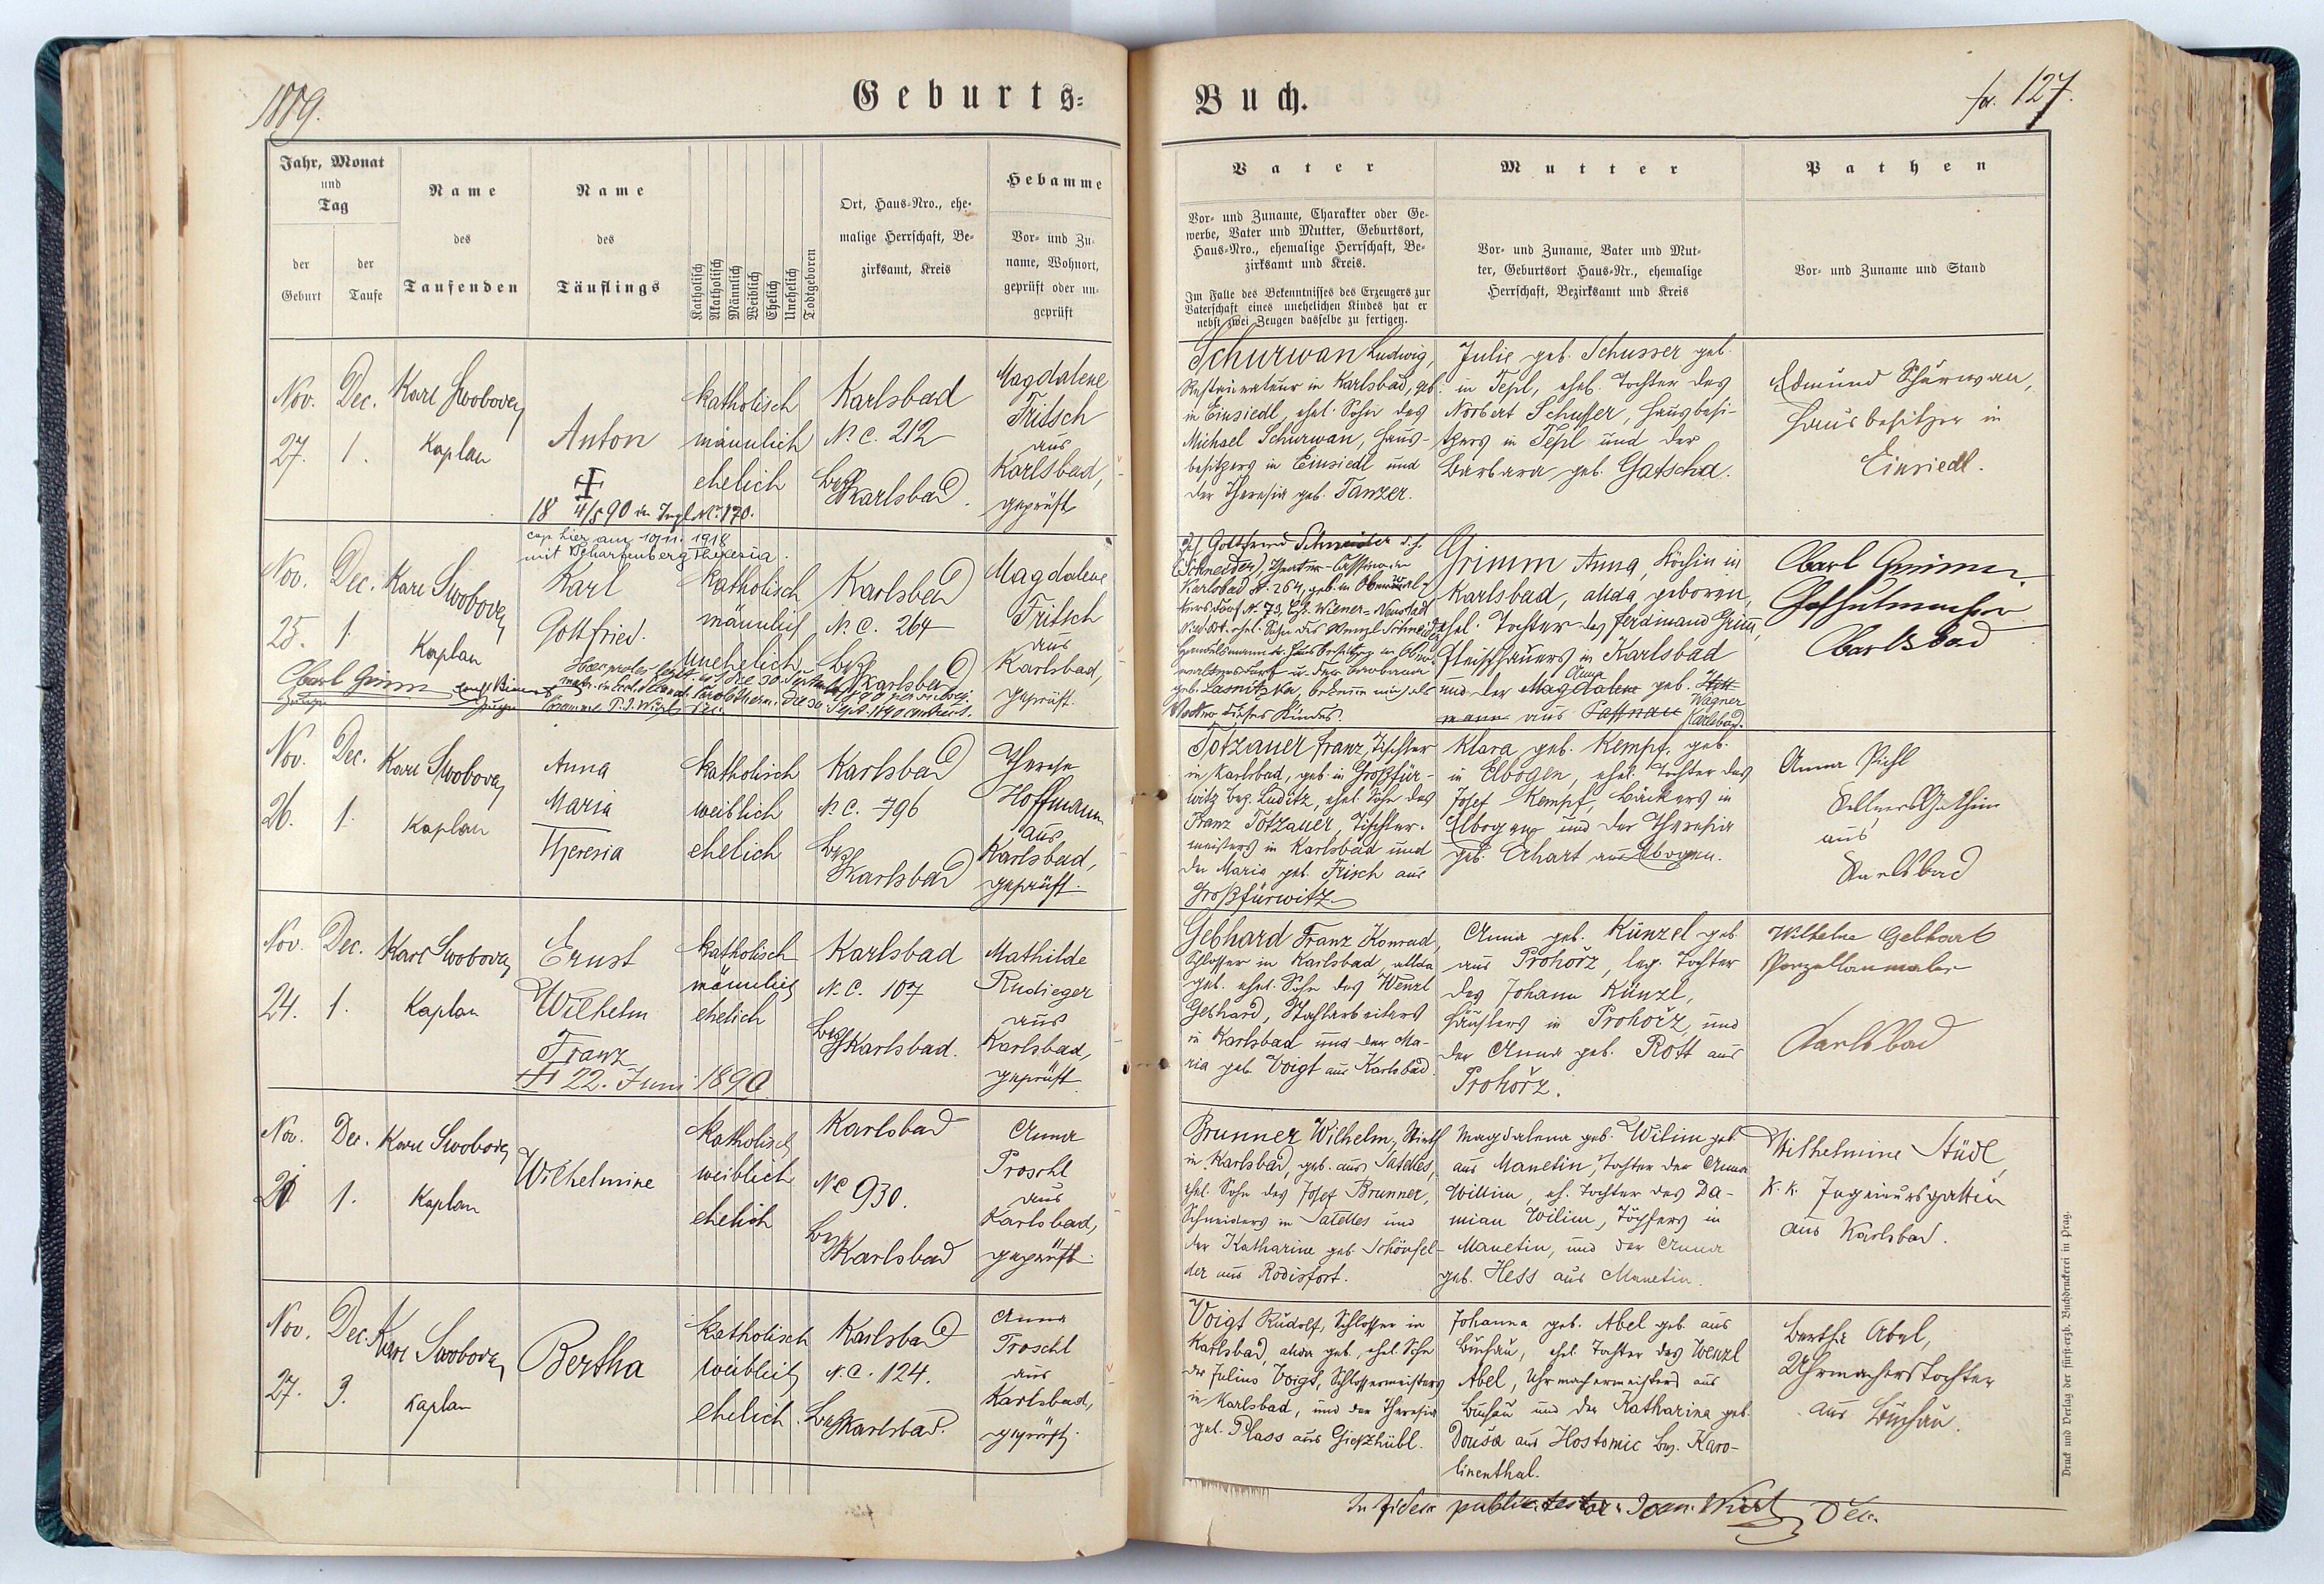 1889.
Geburts-
Buch.
fol. 127.
Jahr, Monat
und
Tag
der
Geburt
der
Taufe
Name
des
Taufenden
Name
des
Täuflings
Katholisch
Akatholisch
Männlich
Weiblich
Ehelich
Unehelich
Todtgeboren
Ort, Haus-Nro., ehe-
malige Herrschaft, Be-
zirksamt, Kreis
Hebamme
Vor- und Zu-
name, Wohnort,
geprüft oder un-
geprüft
Vater
Vor- und Zuname, Charakter oder Ge-
werbe, Vater und Mutter, Geburtsort,
Haus-Nro., ehemalige Herrschaft, Be-
zirksamt und Kreis.
Im Falle des Bekenntnisses des Erzeugers zur
Vaterschaft eines unehelichen Kindes hat er
nebst zwei Zeugen dasselbe zu fertigen.
Mutter
Vor- und Zuname, Vater und Mut-
ter, Geburtsort Haus-Nr., ehemalige
Herrschaft, Bezirksamt und Kreis
Pathen
Vor- und Zuname und Stand
Nov.
27.
Dec.
1.
Karl Swoboda,
Kaplan
Anton
18 4/5 90
No. 170.
katholisch
männlich
ehelich
Karlsbad
N. C. 212
Bez. Karlsbad.
Magdalene
Fritsch
aus
Karlsbad,
geprüft
Schurwan Ludwig,
Restaurateur in Karlsbad, geb.
in Einsiedl, ehel. Sohn des
Michael Schurwan, Haus-
besitzers in Einsiedl und
der Theresia geb. Tanzer.
Julie geb. Schusser geb.
in Tepl, ehel. Tochter des
Norbert Schusser, Hausbesi-
tzers in Tepl und der
Barbara geb. Gatscha.
Edmund Schurwan,
Hausbesitzer in
Einsiedl.
cop. hier am 10/11. 1918
mit Scharfenberg Theresia.
Nov.
25.
Dec.
1.
Karl Swoboda,
Kaplan
Karl
Gottfried.
katholisch
männlich
unehelich
Karlsbad
N. C. 264
Bez. Karlsbad
Magdalene
Fritsch
aus
Karlsbad,
geprüft.
Karl Grimm
Zeuge
Zeuge
Gottfried Schneider
(Schneider), Theater-Cassier in
Karlsbad N. 264, geb. in Ober
kersdorf N. 73, Bez. Wiener-Neustadt
ehel. Sohn des Wenzl Schneider
geb. Lasnitzka, bekenne mich als
Vater dieses Kindes.
Grimm Anna, Köchin in
Karlsbad, allda geboren,
ehel. Tochter des Ferdinand Grimm,
Fleischhauers in Karlsbad
Anna
und der Magdalena geb. Hott
Wagner
mann aus Passnau Karlsbad.
Karl Grimm
Karlsbad
Nov.
26.
Dec.
1.
Karl Swoboda,
Kaplan
Anna
Maria
Theresia
katholisch
weiblich
ehelich
Karlsbad
N. C. 796
Bez. Karlsbad
Therese
Hoffmann
aus
Karlsbad,
geprüft.
Totzauer Franz, Tischler
in Karlsbad, geb. in Großfür-
witz bez. Luditz, ehel. Sohn des
Franz Totzauer, Tischler-
meisters in Karlsbad und
der Maria geb. Frisch aus
Großfürwitz
Klara geb. Kempf, geb.
in Elbogen, ehel. Tochter des
Josef Kempf, Bäckers in
Elbogen und der Theresia
geb. Erhart aus Elbogen.
Anna Pichl
aus
Karlsbad
Nov.
24.
Dec.
1.
Karl Swoboda,
Kaplan
Ernst
Wilhelm
Franz
22. Juni 1890.
katholisch
männlich
ehelich
Karlsbad
N. C. 107
Bez. Karlsbad.
Mathilde
Rudieger
aus
Karlsbad,
geprüft
Gebhard Franz Konrad,
Schlosser in Karlsbad, allda
geb. ehel. Sohn des Wenzl
Gebhard,
in Karlsbad und der Ma-
ria geb. Voigt aus Karlsbad.
Anna geb. Künzel geb.
aus Prohořz, leg. Tochter
des Johann Künzl,
Häuslers in Prohořz, und
der Anna geb. Rott aus
Prohořz.
Wilhelm Gebhart
Porzellanmaler
Karlsbad
Nov.
Dec.
1.
Karl Swoboda,
Kaplan
Wilhelmine
katholisch
weiblich
ehelich
Karlsbad
N. C. 930.
Bez. Karlsbad
Anna
Proschl
aus
Karlsbad,
geprüft.
Brunner Wilhelm, Wirth
in Karlsbad, geb. aus Satteles,
ehel. Sohn des Josef Brunner,
Schneiders in Satteles und
der Katharine geb. Schönfel-
der aus Rodisfort.
Magdalena geb. Wilim geb.
aus Manetin, Tochter der Anna
Willim, eh. Tochter des Da-
mian Wilim, Töpfers in
Manetin, und der Anna
geb. Hess aus Manetin.
Wilhelmine Stüdl,
k. k. Ingenieursgattin
aus Karlsbad.
Nov.
27.
Dec.
3.
Karl Swoboda,
Kaplan
Bertha
katholisch
weiblich
ehelich.
Karlsbad
N. C. 124.
Bez. Karlsbad.
Anna
Proschl
aus
Karlsbad,
geprüft.
Voigt Rudolf, Schlosser in
Karlsbad, allda geb., ehel. Sohn
des Julius Voigt, Schlossermeisters
in Karlsbad, und der Theresia
geb. Plass aus Gießhübl.
Johanna geb. Abel geb. aus
Buchau, ehel. Tochter des Wenzl
Abel, Uhrmachermeisters aus
Buchau und der Katharina geb.
Douša aus Hostomic bez. Karo-
linenthal.
Bertha Abel,
Uhrmacherstochter
aus Buchau.
Druck und Verlag der fürst-erzb. Buchdruckerei in Prag.
In fidem publ. testor: Joan. Würl Dec.